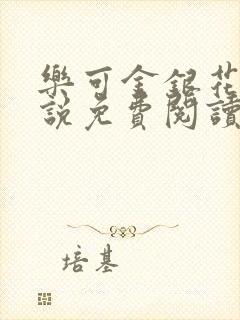 樂可金銀花
說免費閱讀
培基